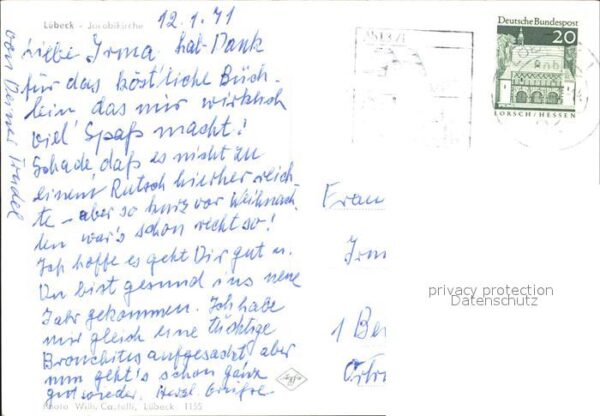 Lübeck - Jacobikirche
12.1.71
Liebe Irma, hab Dank
für das köstliche Büch-
lein das mir wirklich
viel Spaß macht!
Schade daß es nicht zu
einem Rutsch hierher reich
te - aber so kurz vor Weihnach
ten war's schon recht so!
Ich hoffe es geht Dir gut u.
Du bist gesund ins neue
Jahr gekommen. Ich habe
mir gleich eine tüchtige
Bronchites aufgesackt aber
nun geht's schon ganz
gut wieder. Herzl. Grüße
von Deiner Trudel
Photo Wilh. Castelli, Lübeck 1155
Agfa
Deutsche Bundespost
20
LORSCH/HESSEN
Frau
Irm
1 Ber
privacy protection
Datenschutz